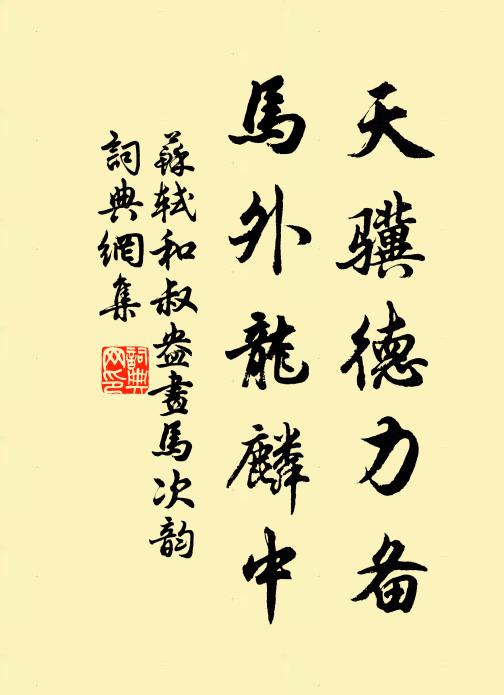 天骥德力备
馬外龍麟中
蘇軾和叔盎畫馬次韵
詞典網集
詞典網印